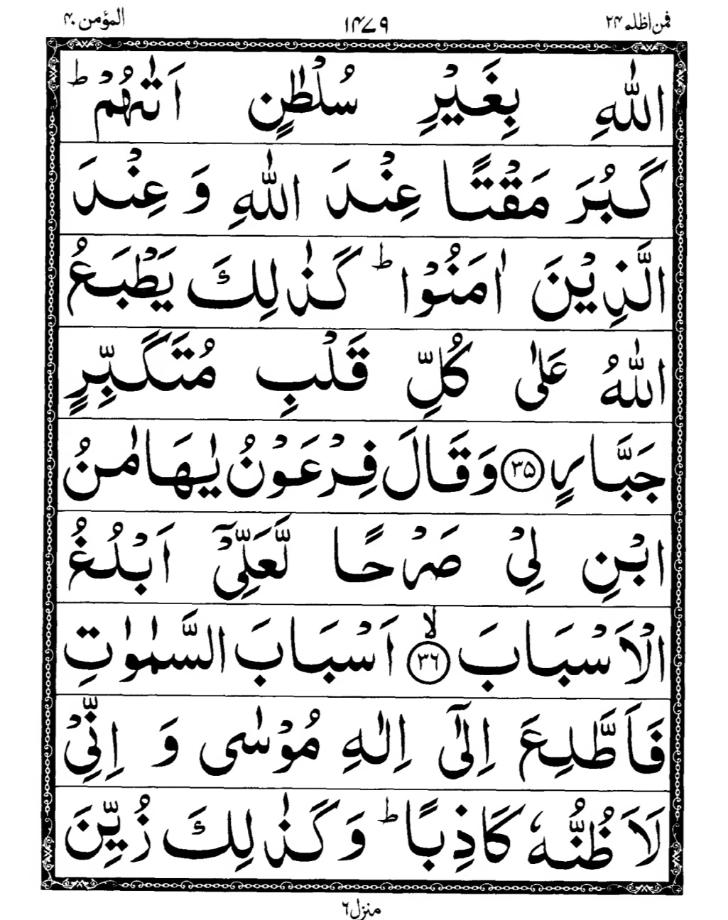 فمن اظلم ٢٤ ١٤٧٩ المؤمن ٤٠
اللّٰهِ بِغَيْرِ سُلْطٰنٍ اَتٰىهُمْ ؕ
كَبُرَ مَقْتًا عِنْدَ اللّٰهِ وَ عِنْدَ
الَّذِيْنَ اٰمَنُوْا ؕ كَذٰلِكَ يَطْبَعُ
اللّٰهُ عَلٰى كُلِّ قَلْبِ مُتَكَبِّرٍ
جَبَّارٍ ﴿٣٥﴾ وَقَالَ فِرْعَوْنُ يٰهَامٰنُ
ابْنِ لِيْ صَرْحًا لَّعَلِّيْۤ اَبْلُغُ
الْاَسْبَابَ ۙ﴿٣٦﴾ اَسْبَابَ السَّمٰوٰتِ
فَاَطَّلِعَ اِلٰۤى اِلٰهِ مُوْسٰى وَ اِنِّيْ
لَاَظُنُّهٗ كَاذِبًا ؕ وَكَذٰلِكَ زُيِّنَ
منزل ٦